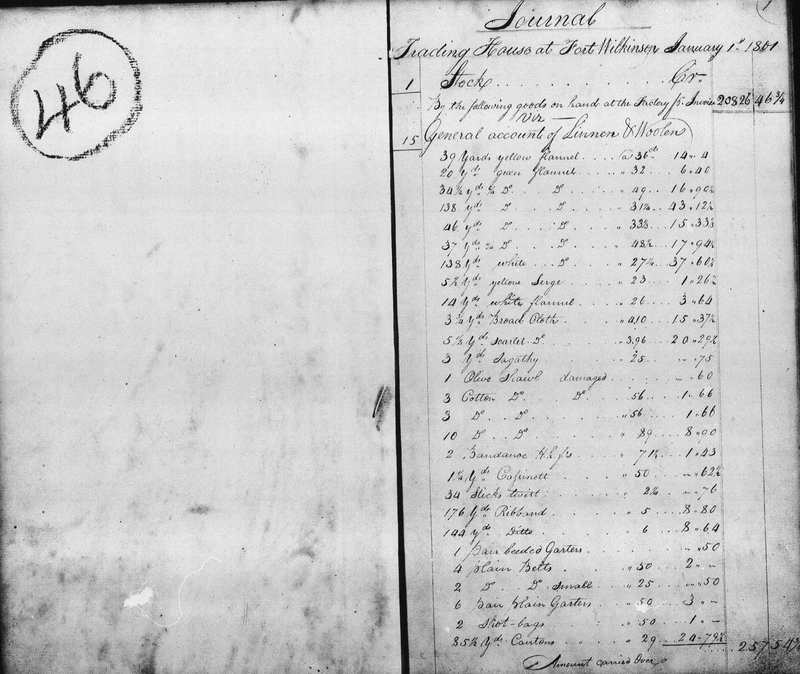 46
1
Journal
Trading House at Fort Wilkinson January 1st 1801
1 Stock Cr.
By the following goods on hand at the Factory pr. Invoice 20826 46 3/4
Viz
15 General account of Linnen & Woolen
39 Yards yellow flannel @ 36 14 " 4
20 Yds green flannel " 32 6 " 40
34 1/2 yds Do Do " 49 16 " 90 1/2
138 yds Do Do " 31 1/4 43 " 12 1/2
46 yds Do Do " 33 1/3 15 " 33 1/3
37 yds Do Do " 48 1/2 17 " 94 1/2
138 Yds white Do " 27 1/4 37 " 60 1/2
5 1/2 Yds yellow Serge " 23 1 " 26 1/2
14 Yds white flannel " 26 3 " 64
3 3/4 Yds Broad Cloth " 410 15 " 37 1/2
5 1/8 Yds Scarlet Do " 396 20 " 29 1/2
3 Yds Sagathy " 25 " " 75
1 Olive Shawl damaged " " 60
3 Cotton Do Do " 56 1 " 66
3 Do Do " 56 1 " 66
10 Do Do " 89 8 " 90
2 Bandanoe Hkfs " 71 1/2 1 " 43
1 1/4 Yds Cassinett " 50 " " 62 1/2
34 Sticks twist " 2 1/4 " " 76
176 Yds Ribband " 5 8 " 80
144 yds Ditto 6 8 " 64
1 pair beeded Garters " " 50
4 plain Belts " 50 2 " "
2 Do Do small " 25 " " 50
6 Pair plain Garters " 50 3 " "
2 Shot-bags " 50 1 " "
85 1/2 Yds " 29 24 " 79 1/2 257 54
Amount carried Over